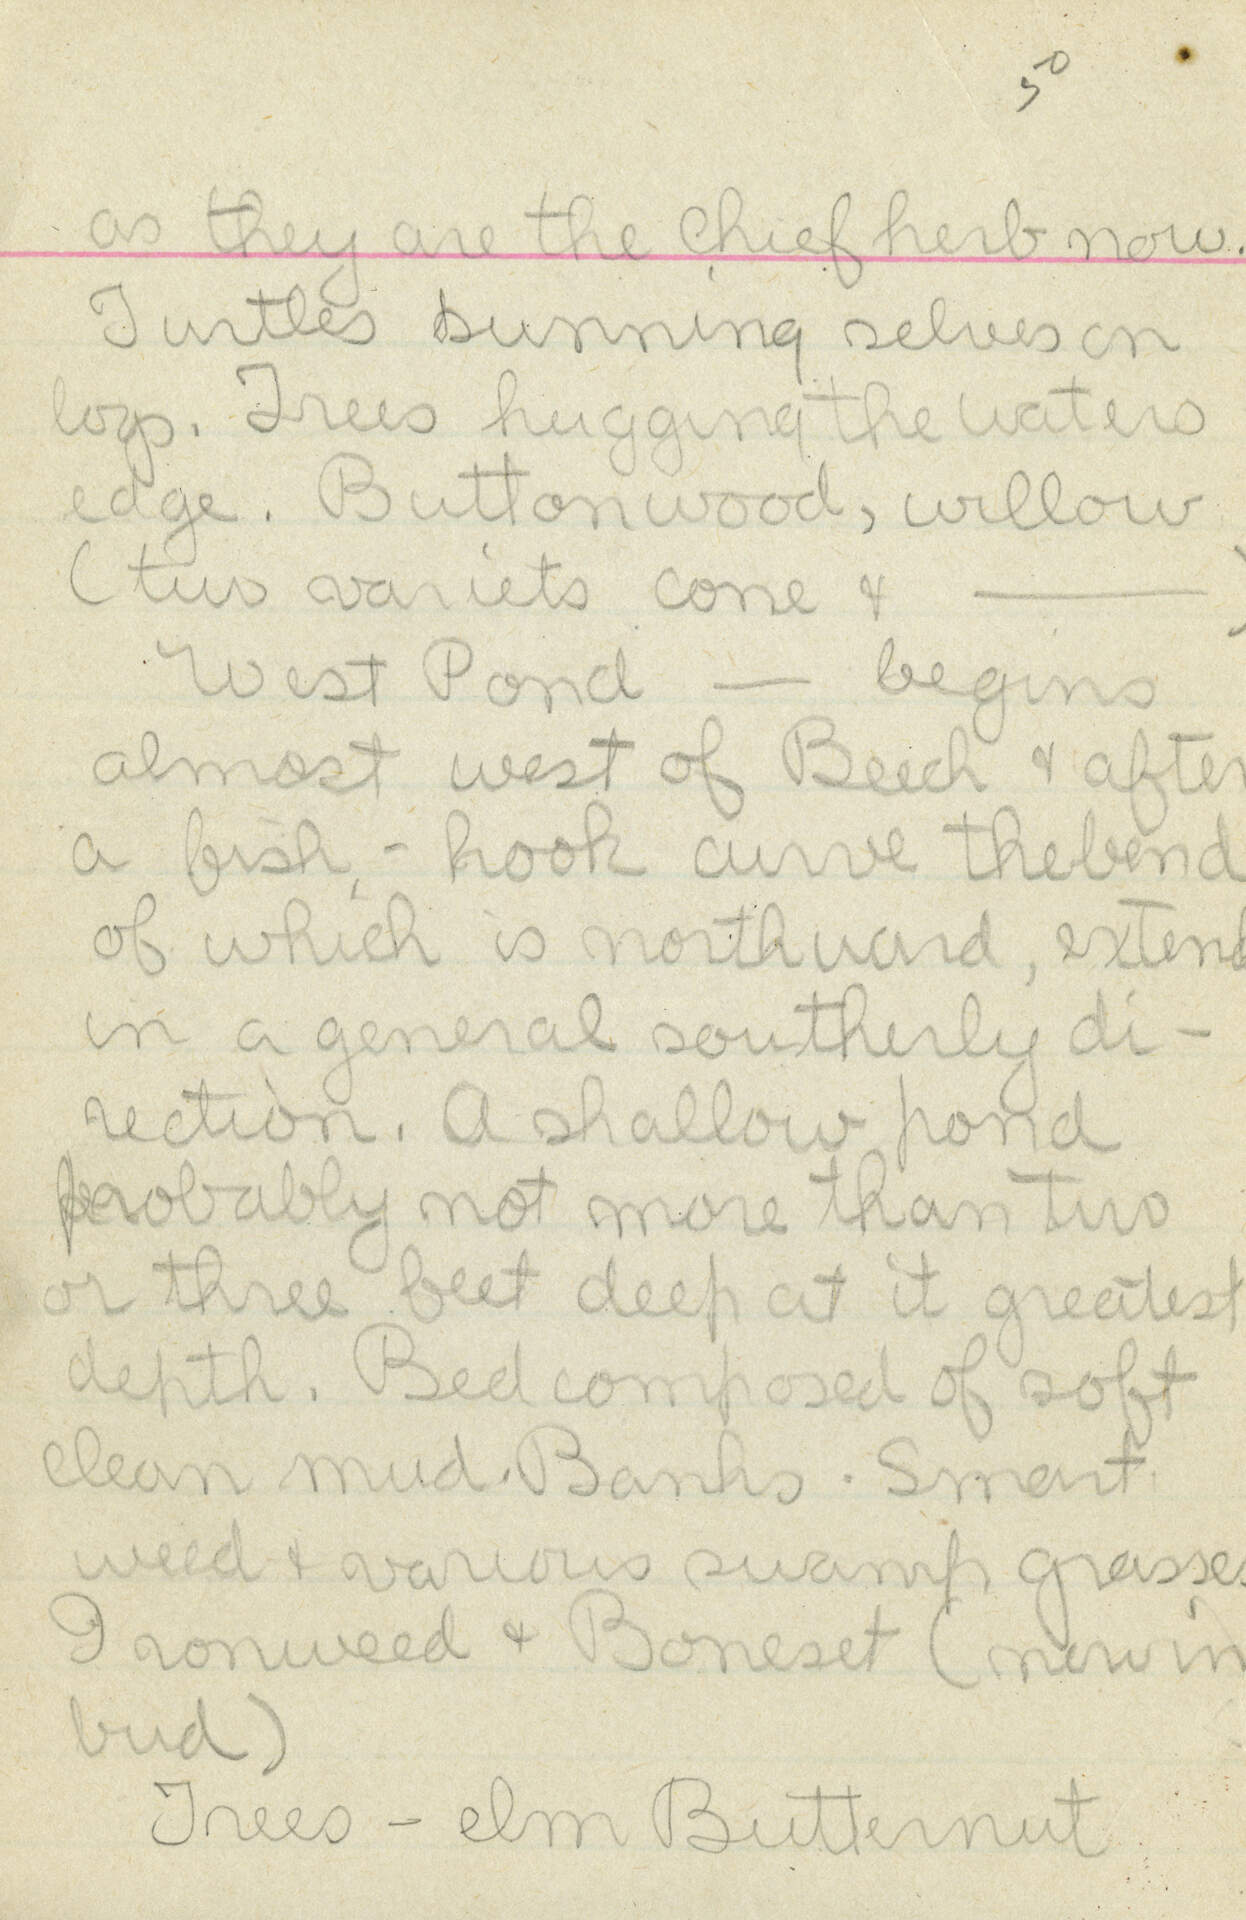 50
as they are the chief herb now.
Turtles sunning selves on
logs. Trees hugging the waters
edge. Buttonwood, willow
(two variets cone & ——— )
West Pond — begins
almost west of Beech & after
a fish-hook curve the bend
of which is northward, extend
in a general southerly di-
rection. A shallow pond
probably not more than two
or three feet deep at it greatest
depth. Bed composed of soft
clean mud. Banks. Smart
weed & various swamp grasses
Ironweed & Boneset (now in
bud)
Trees - elm Butternut